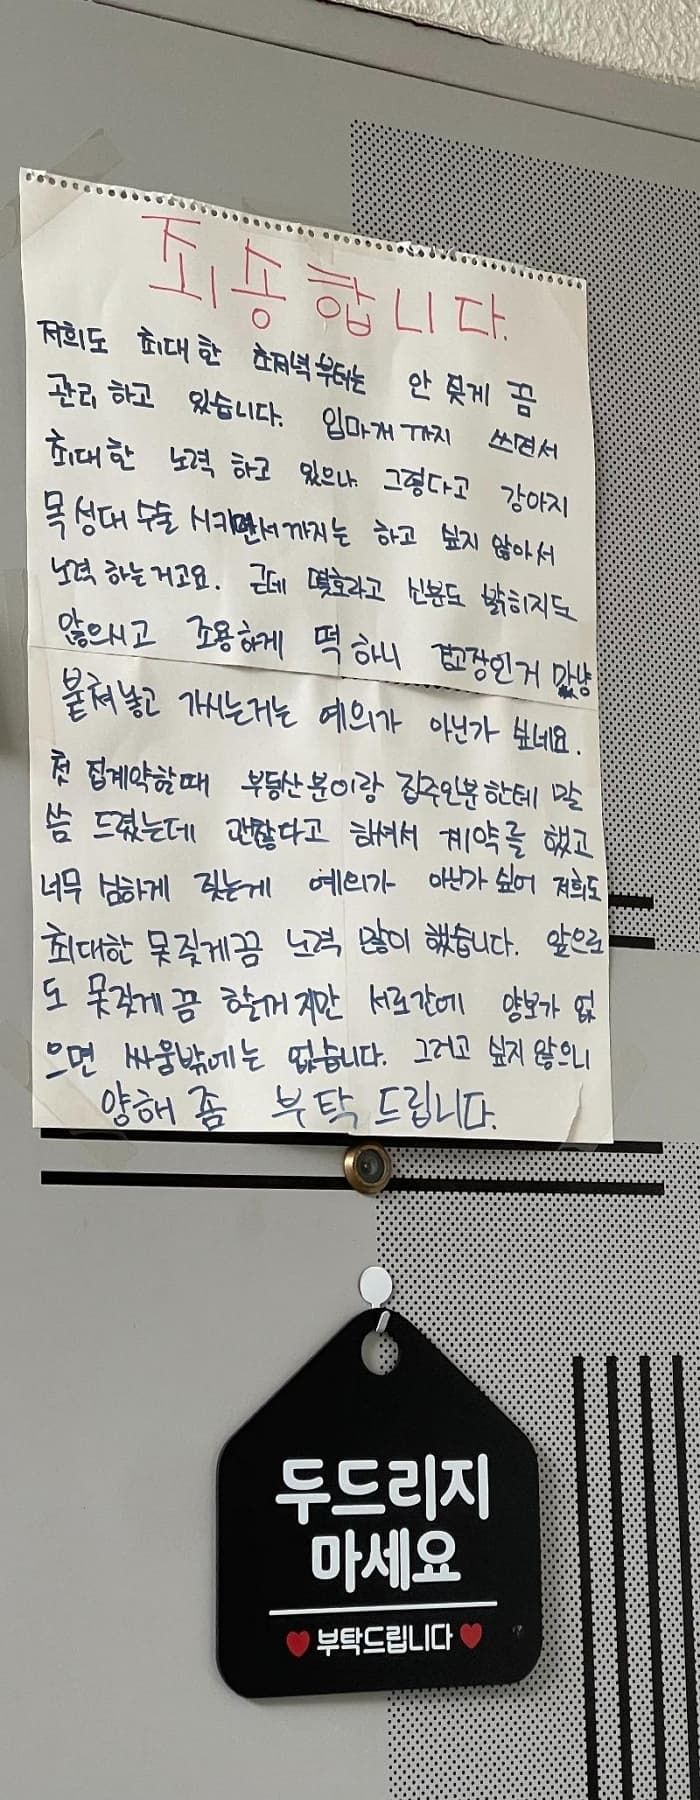 죄송합니다.
저희도 최대한 초저녁부터는 안 짖게 끔
관리 하고 있습니다. 입마개 까지 쓰면서
최대한 노력 하고 있으나 그렇다고 강아지
목 성대 수술 시키면서 까지는 하고 싶지 않아서
노력 하는거고요. 근데 몇호라고 신분도 밝히지도
않으시고 조용하게 떡 하니 경고장인거 마냥
붙쳐놓고 가시는거는 예의가 아닌가 싶네요.
첫 집계약할때 부동산분이랑 집주인분한테 말
씀 드렸는데 괜찮다고 하셔서 계약를 했고
너무 심하게 짖는게 예의가 아닌가 싶어 저희도
최대한 못짖게끔 노력 많이 했습니다. 앞으로
도 못짖게 끔 할꺼지만 서로간에 양보가 없
으면 싸움밖에는 없습니다. 그러고 싶지 않으니
양해 좀 부탁 드립니다.
두드리지
마세요
부탁드립니다